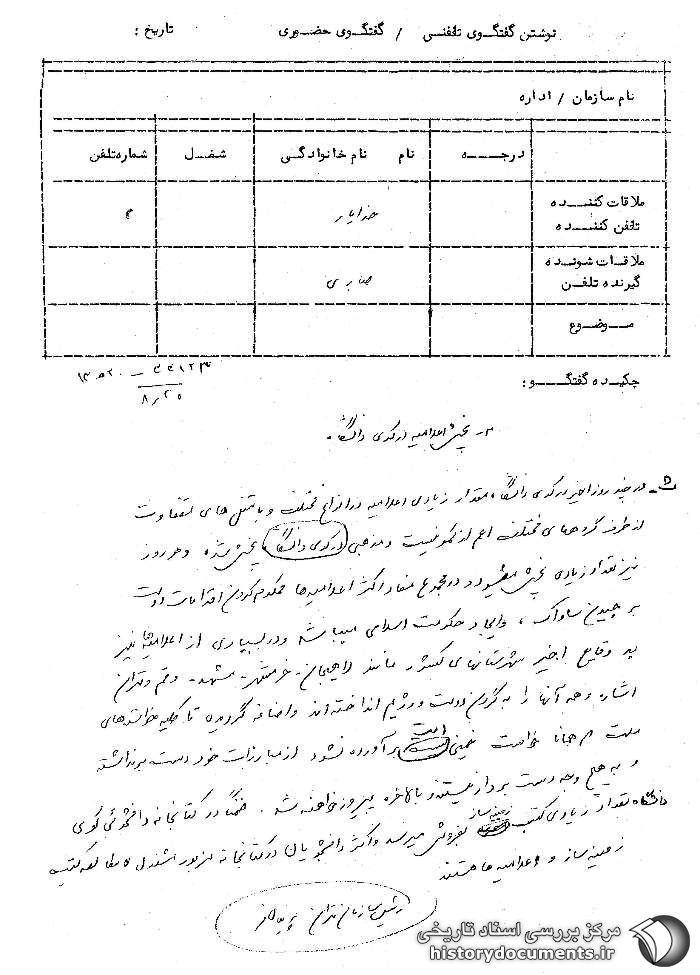 نوشتن گفتگوی تلفنی / گفتگوی حضوری تاریخ :
نام سازمان / اداره
درجه نام نام خانوادگی شغل شماره تلفن
ملاقات کننده
تلفن کننده خدایار ۴
ملاقات شونده
گیرنده تلفن صابری
موضوع
چکیده گفتگو :
۸/۲۵
پخش اعلامیه در کوی دانشگاه
در چند روز اخیر در کوی دانشگاه مقدار زیادی اعلامیه در انواع مختلف و با متن های متفاوت
از طرف گروههای مختلف اعم از کمونیست و مذهبی در کوی دانشگاه پخش شده و هر روز
نیز تعداد زیادی پخش میشود و در مجموع مفاد اکثر اعلامیه‌ها محکوم کردن اقدامات دولت
برچیدن ساواک ، و ایجاد حکومت اسلامی میباشد و در بسیاری از اعلامیه‌ها نیز
به وقایع اخیر شهرستانهای کشور مانند لاهیجان - خرمشهر - مشهد - و قم و تهران
اشاره و همه آنها را به گردن دولت و رژیم انداخته‌اند و اضافه گردیده تا کلیه خواسته‌های
ملت همانا خواست خمینی است برآورده نشود از مبارزات خود دست برنداشته
و به هیچ وجه دست بردار نیستند و بالاخره پیروز خواهند شد . ضمناً در کتابخانه دانشجوئی کوی
دانشگاه تعداد زیادی کتب زمینه‌ساز بفروش میرسد و اکثر دانشجویان در کتابخانه مزبور مشغول مطالعه کتب
زمینه ساز و اعلامیه ها هستند
رئیس سازمان تهران
مرکز بررسی اسناد تاریخی
historydocuments.ir